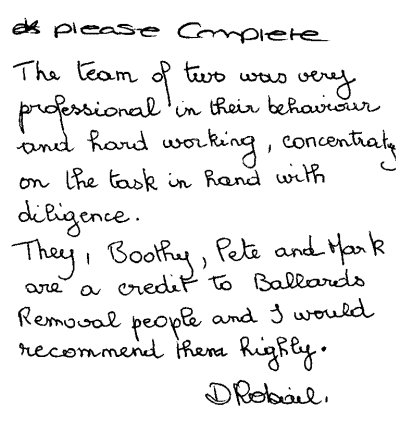 please Complete
The team of two was very
professional in their behaviour
and hard working, concentratg
on the task in hand with
diligence.
They, Boothy, Pete and Mark
are a credit to Ballards
Removal people and I would
recommend them highly.